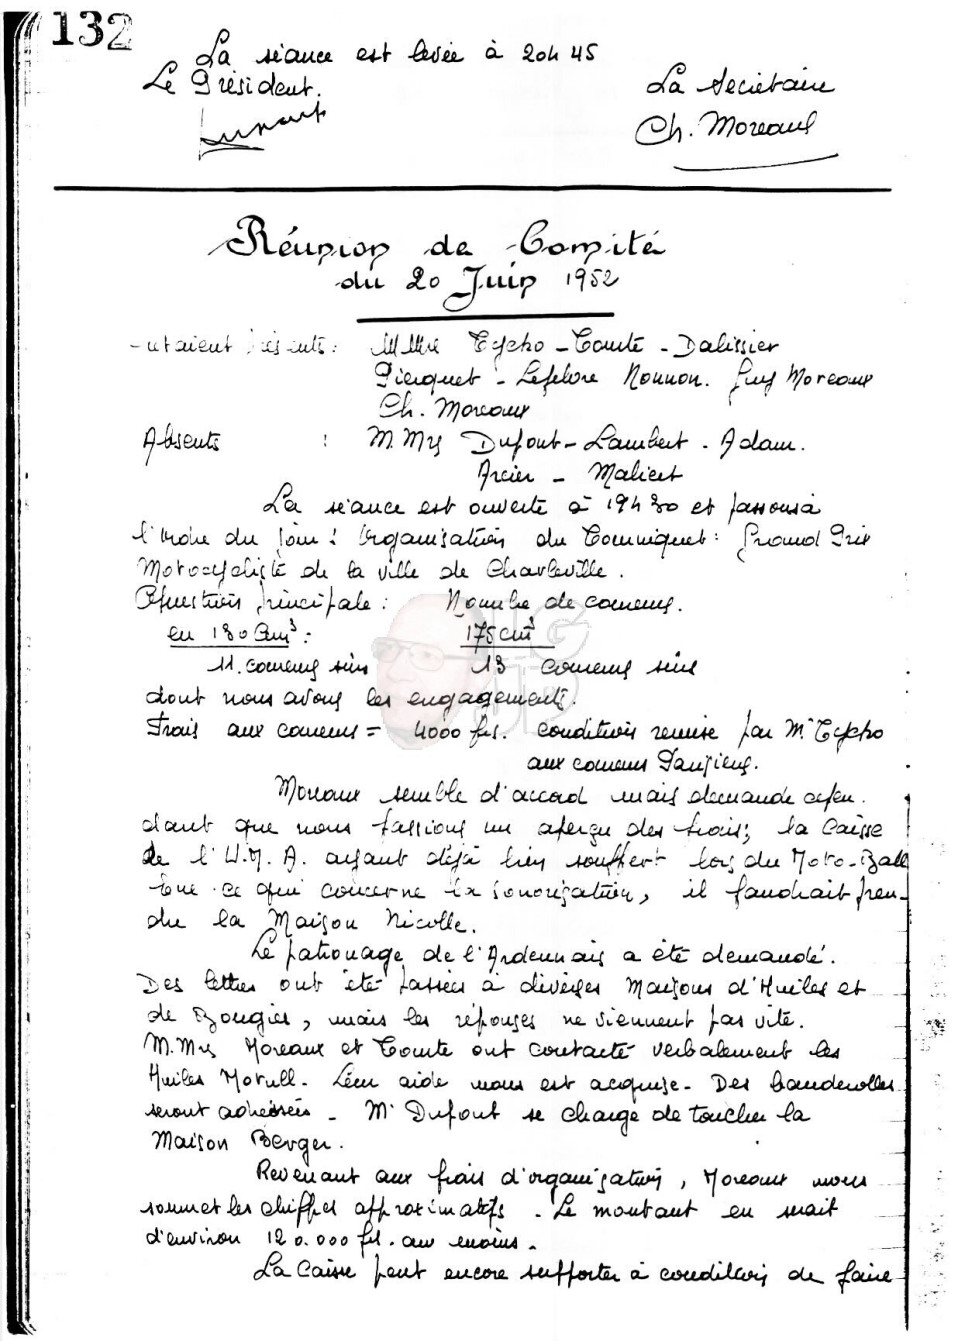 132
La séance est levée à 20h 45
Le Président.
La Secrétaire
Ch. Moreaux
Réunion de Comité
du 20 Juin 1952
étaient présents : MMrs Cycko - Comte - Dalissier
Pierquet - Lefebvre Nonnon. Guy Moreaux
Ch. Moreaux
Absents : M.Mrs Dufout - Lambert - Adam.
Arcier - Malicet
La séance est ouverte à 19h 30 et passons à
l'ordre du jour : Organisation du Grand Prix
Motocycliste de la ville de Charleville.
Question principale : Nombre de coureurs.
en 175cm³
11. coureurs sûrs 13 coureurs sûrs
dont nous avons les engagements.
Frais aux coureurs = 4000 frs. condition remise par Mr Cycko
aux coureurs
Moreaux semble d'accord mais demande cepen-
dant que nous fassions un aperçu des frais; la Caisse
de l'U.M.A. ayant déjà bien souffert lors du Moto-Ball
En ce qui concerne la sonorisation, il faudrait pren-
dre la Maison Nicolle.
Le patronage de l'Ardennais a été demandé.
Des lettres ont été passées à diverses Maisons d'Huiles et
de Bougies, mais les réponses ne viennent pas vite.
M.Mrs Moreaux et Comte ont contacté verbalement les
Huiles Motull. Leur aide nous est acquise - Des banderolles
seront adressées - Mr Dufout se charge de toucher la
Maison Berger.
Revenant aux frais d'organisation, Moreaux nous
soumet les chiffres approximatifs. Le montant en serait
d'environ 120.000 frs. au moins.
La Caisse peut encore supporter à condition de faire